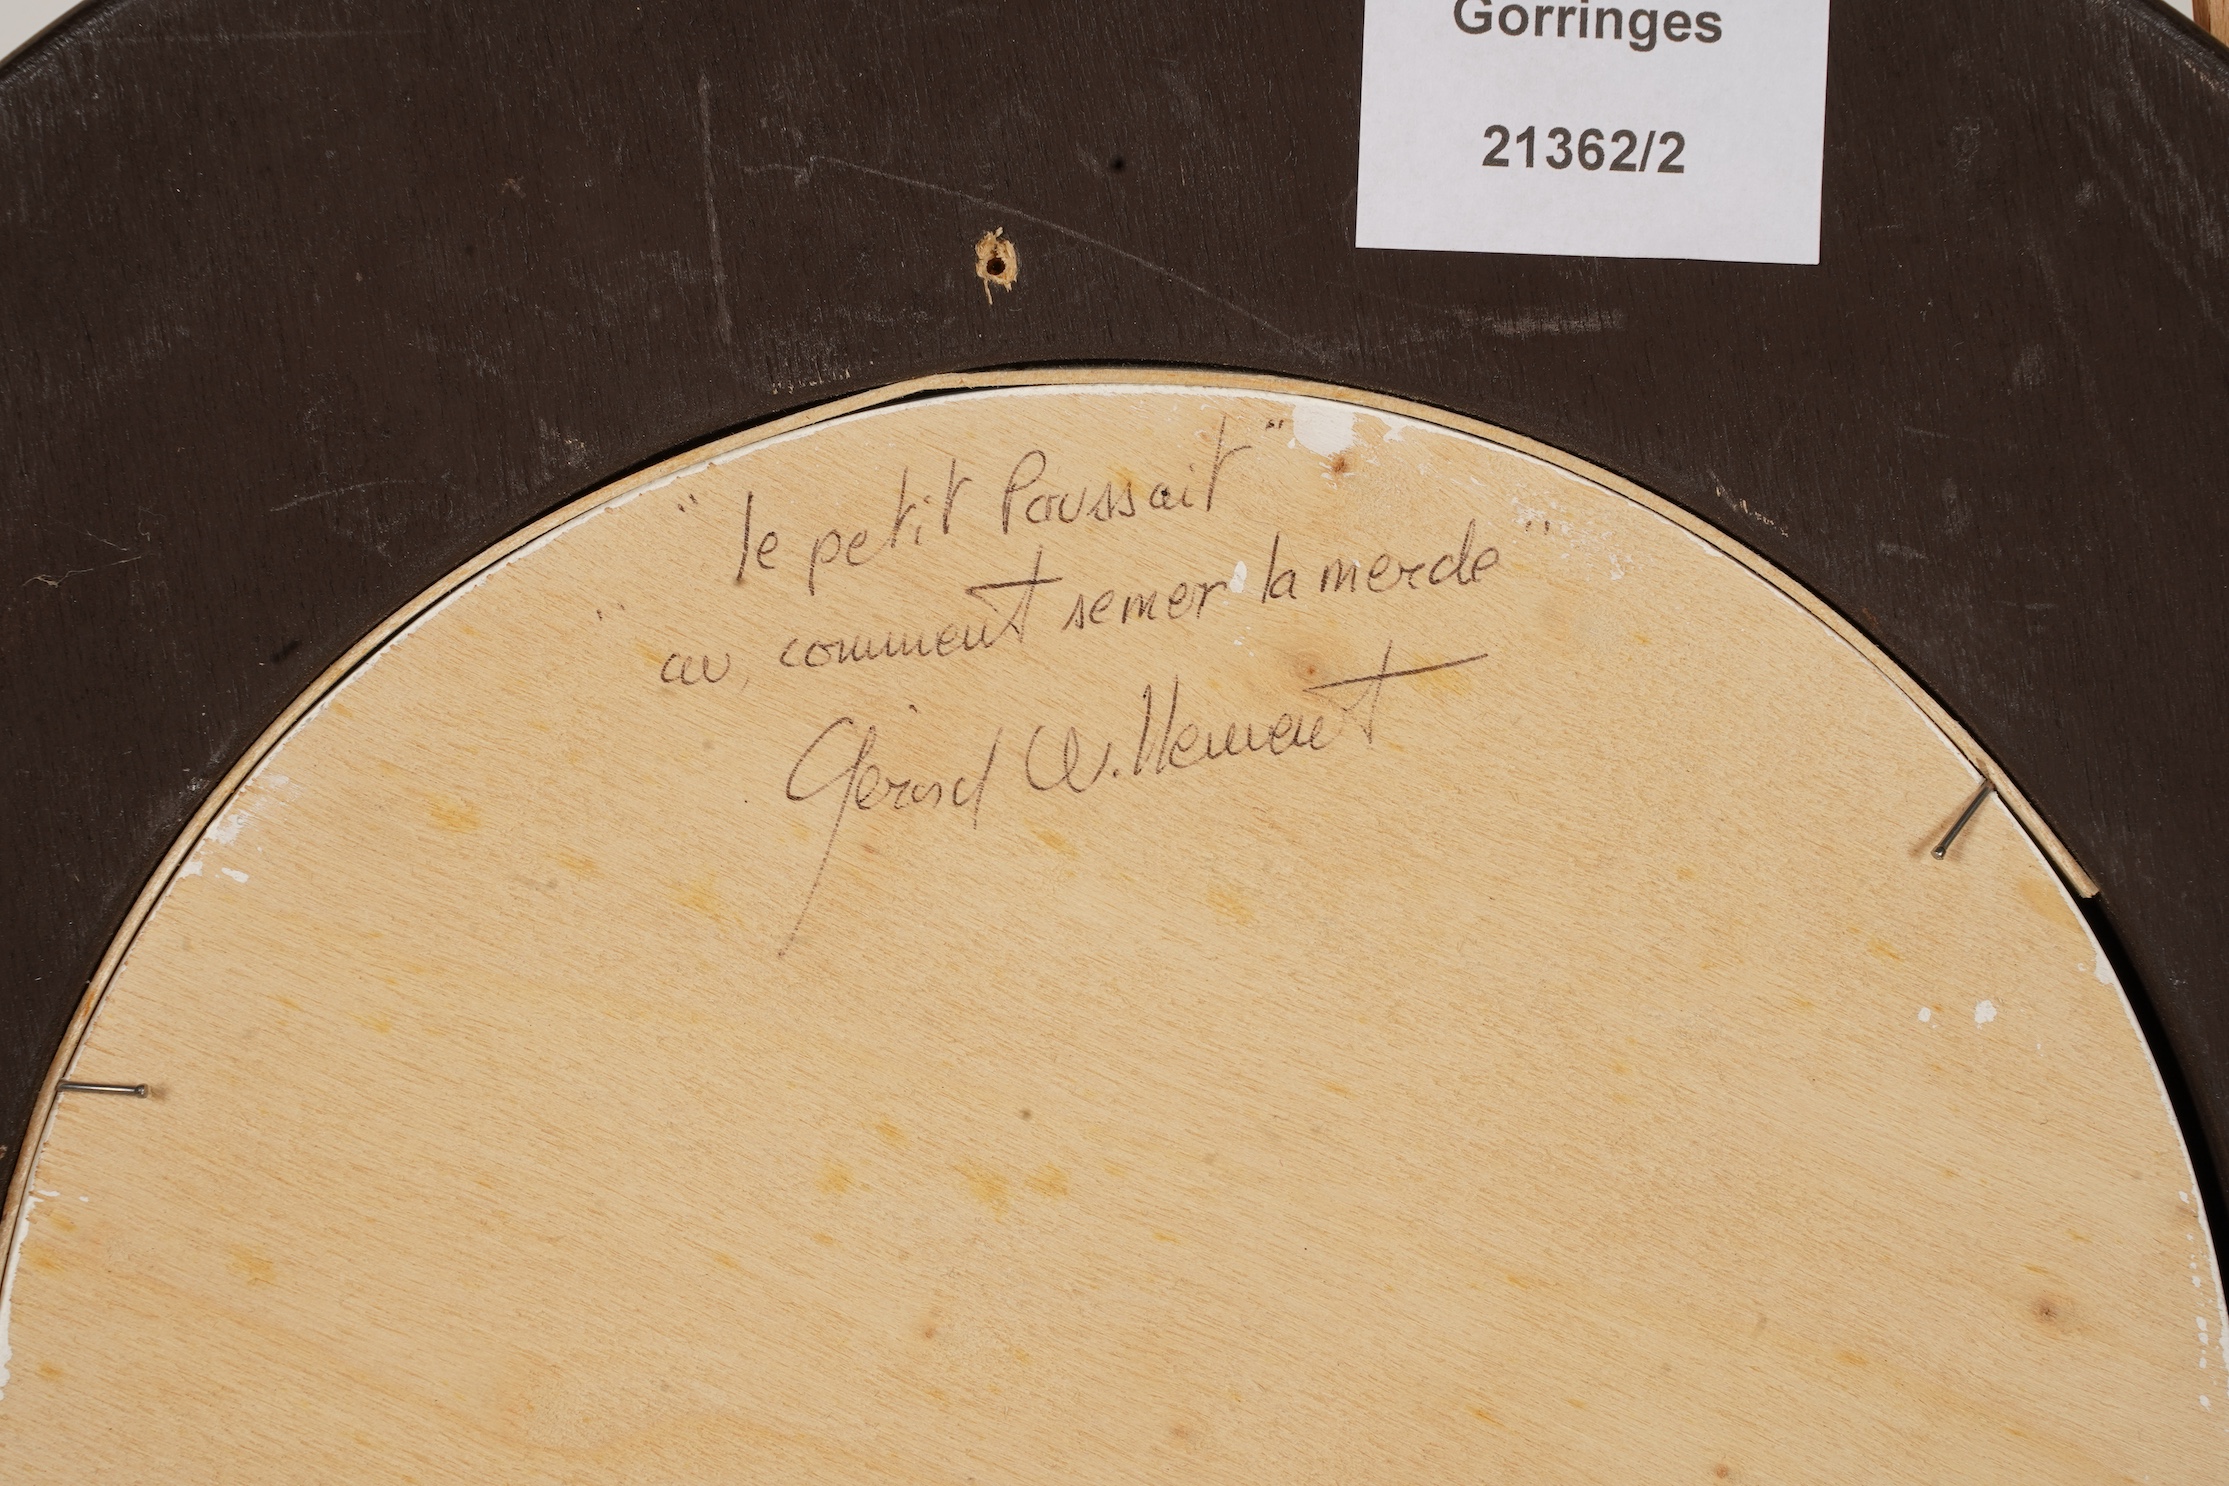 Gorringes
21362/2
"le petit Poussait"
"ou, comment semer la merde"
Gérard Willemenot